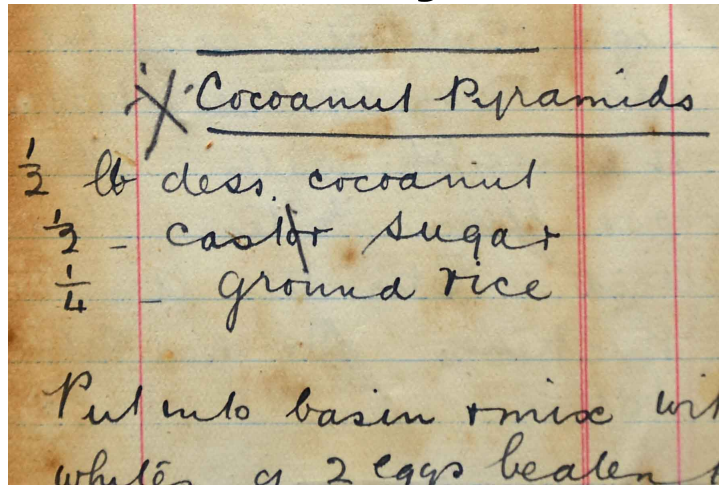 Cocoanut Pyramids
½ lb dess. cocoanut
½ - castor sugar
¼ - ground rice
Put into basin + mix wit
whites of 2 eggs beaten